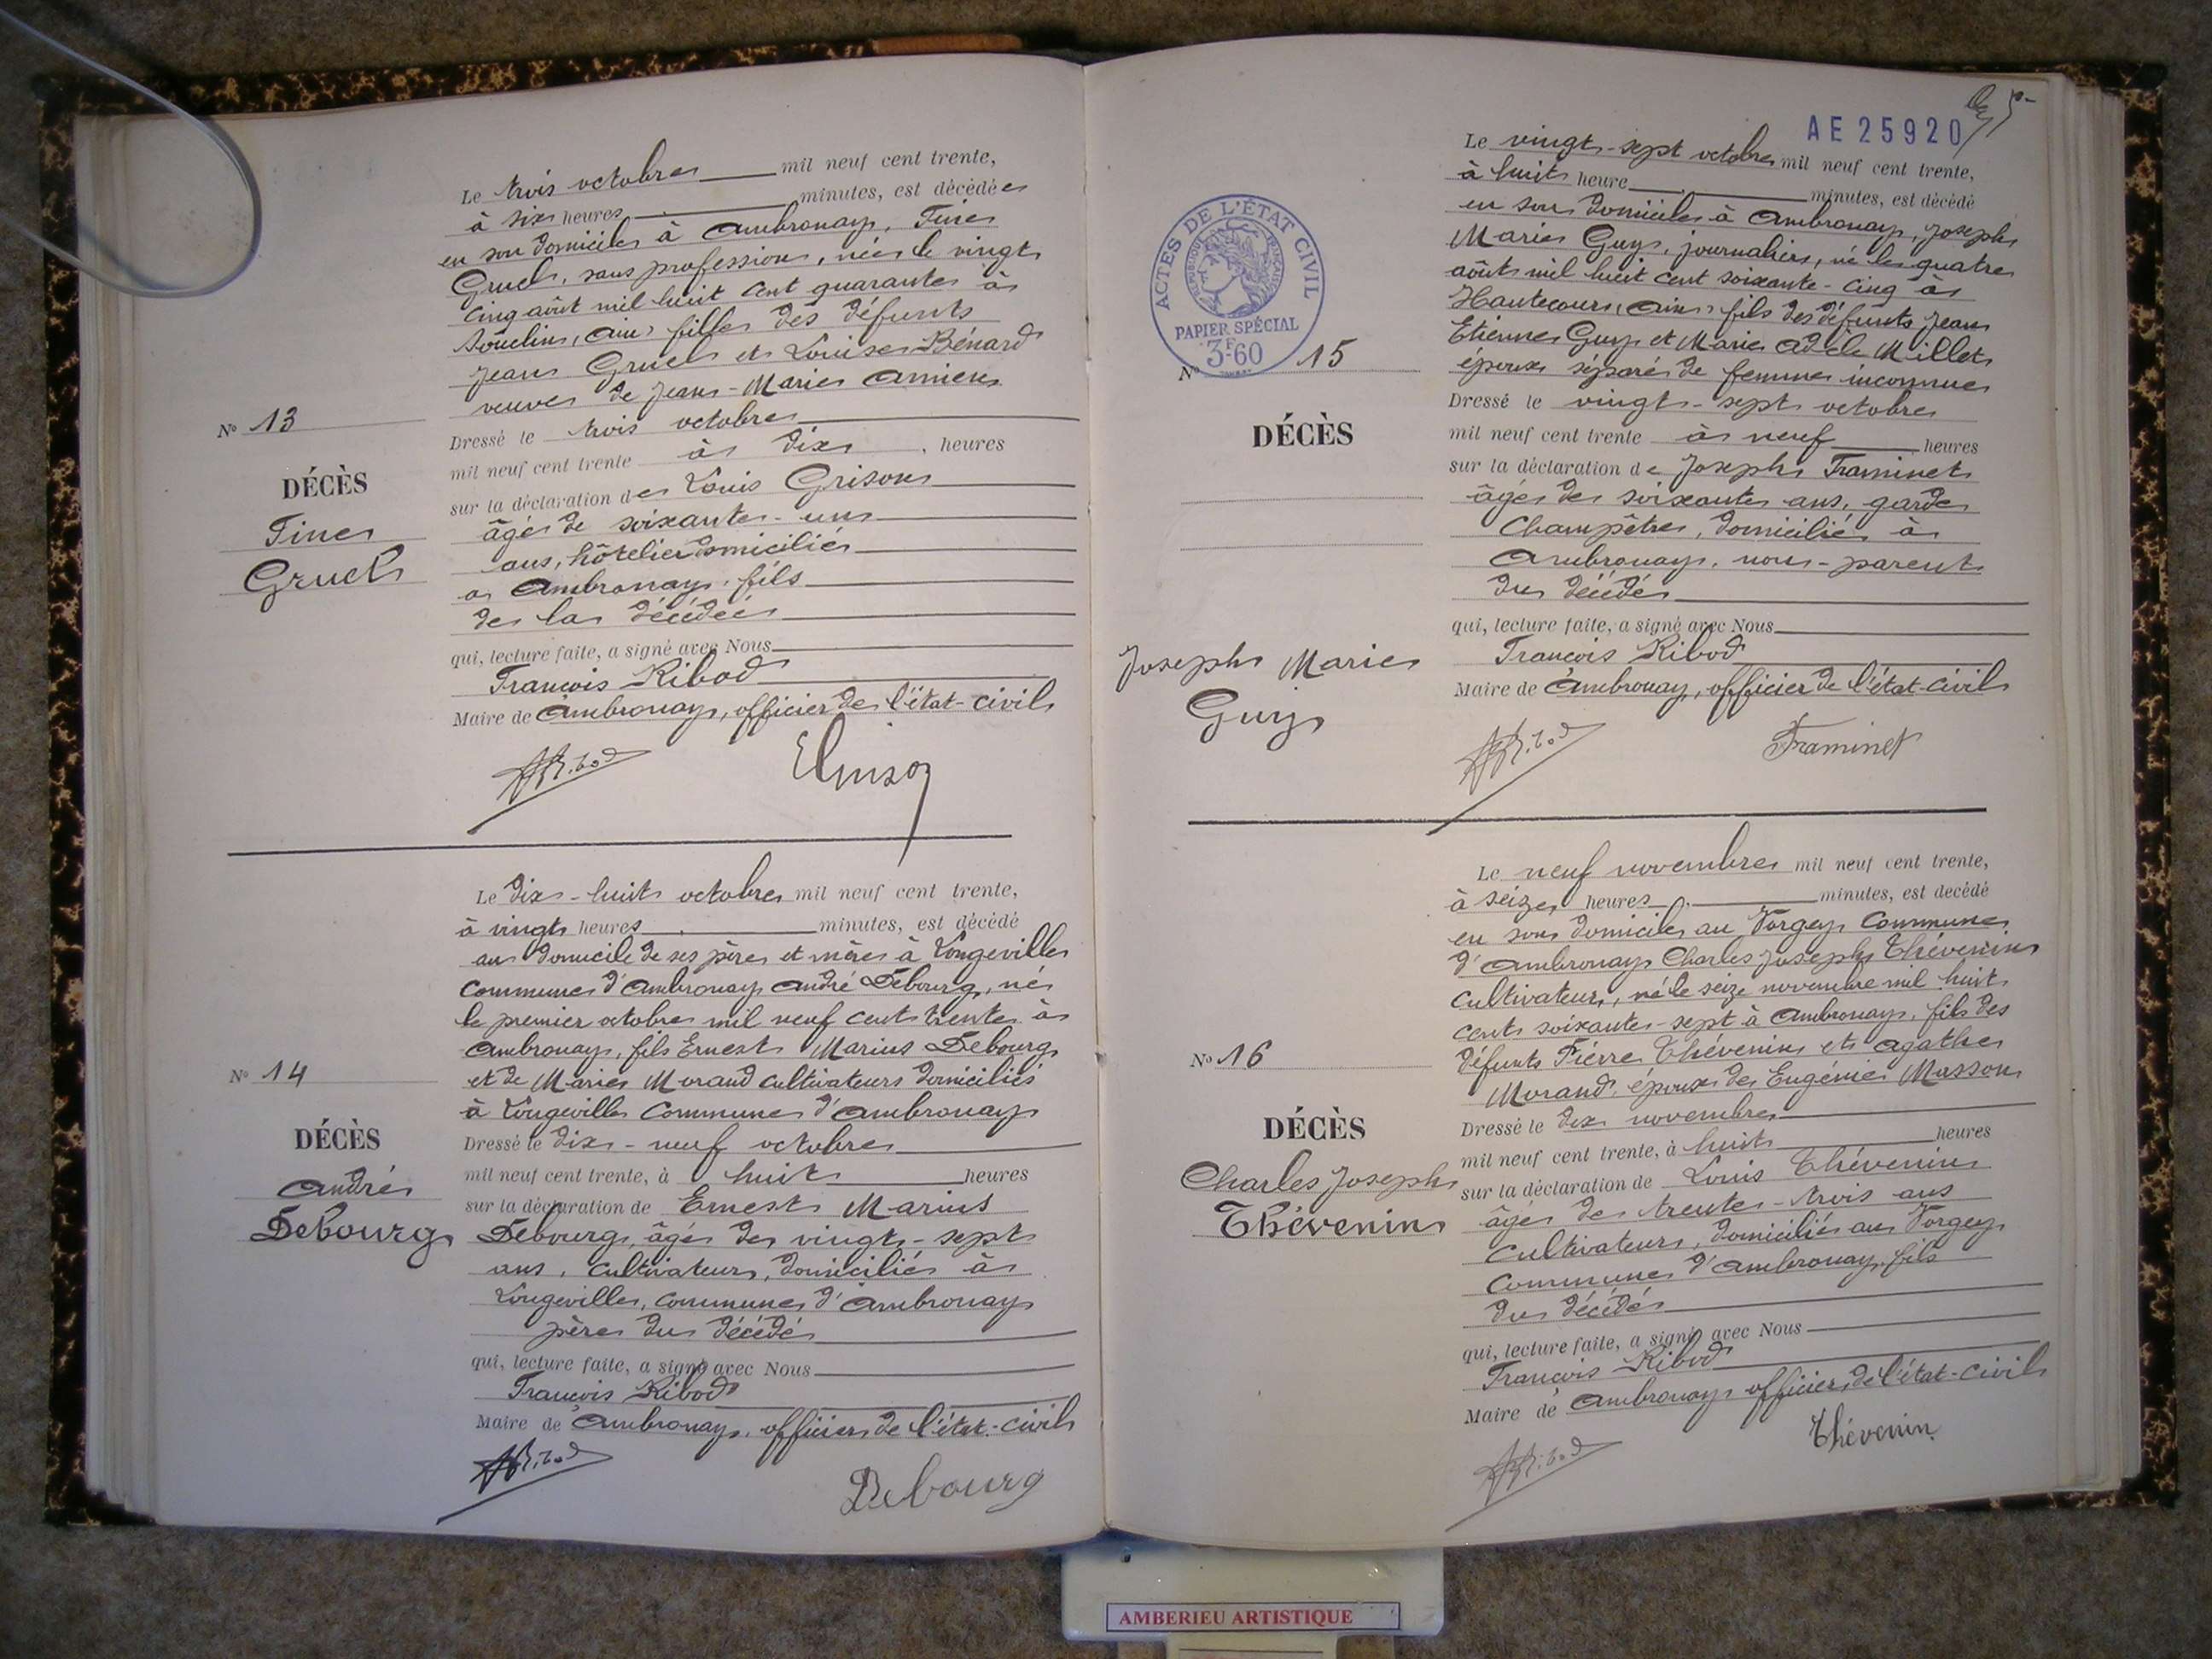 Le trois octobre mil neuf cent trente,
à six heures minutes, est décédée
en son domicile à Ambronay, Fine
Gruel, sans profession, née le vingt
cinq août mil huit cent quarante à
Souclin, Ain, fille des défunts
Jean Gruel et Louise Bénard
veuve de Jean-Marie Amien
Dressé le trois octobre
mil neuf cent trente à dix heures
sur la déclaration de Louis Grison
âgé de soixante-un
ans, hôtelier domicilié
à Ambronay, fils
de la décédée
qui, lecture faite, a signé avec Nous
François Ribod
Maire de Ambronay, officier de l'état-civil
No 13
DÉCÈS
Fine
Gruel
Le dix-huit octobre mil neuf cent trente,
à vingt heures minutes, est décédé
au domicile de ses père et mère à Longeville
commune d'Ambronay André Debourg, né
le premier octobre mil neuf cent trente à
Ambronay, fils Ernest Marius Debourg
et de Marie Morand cultivateurs domiciliés
à Longeville commune d'Ambronay
Dressé le dix-neuf octobre
mil neuf cent trente, à huit heures
sur la déclaration de Ernest Marius
Debourg, âgé de vingt-sept
ans, cultivateur, domicilié à
Longeville, commune d'Ambronay
père du décédé
qui, lecture faite, a signé avec Nous
François Ribod
Maire de Ambronay, officier de l'état-civil
Debourg
No 14
DÉCÈS
André
Debourg
AE 25920
ACTES DE L'ÉTAT CIVIL
RÉPUBLIQUE FRANÇAISE
PAPIER SPÉCIAL
3F60
Le vingt-sept octobre mil neuf cent trente,
à huit heure minutes, est décédé
en son domicile à Ambronay, Joseph
Marie Guy, journalier, né le quatre
août mil huit cent soixante-cinq à
Hautecour, Ain, fils des défunts Jean
Etienne Guy et Marie Adèle Millet
époux séparé de femme inconnue
Dressé le vingt-sept octobre
mil neuf cent trente à neuf heures
sur la déclaration de Joseph Traminet
âgé de soixante ans, garde
champêtre, domicilié à
Ambronay, non-parent
du décédé
qui, lecture faite, a signé avec Nous
François Ribod
Maire de Ambronay, officier de l'état-civil
Traminet
No 15
DÉCÈS
Joseph Marie
Guy
Le neuf novembre mil neuf cent trente,
à seize heures minutes, est decédé
en son domicile au Vorgey commune
d'Ambronay Charles Joseph Thévenin
cultivateur, né le seize novembre mil huit
cent soixante-sept à Ambronay, fils des
défunts Pierre Thévenin et Agathe
Morand, époux de Eugénie Masson
Dressé le dix novembre
mil neuf cent trente, à huit heures
sur la déclaration de Louis Thévenin
âgé de trente-trois ans
cultivateur, domicilié au Vorgey
commune d'Ambronay, fils
du décédé
qui, lecture faite, a signé avec Nous
François Ribod
Maire de Ambronay officier de l'état-civil
Thévenin
No 16
DÉCÈS
Charles Joseph
Thévenin
AMBERIEU ARTISTIQUE